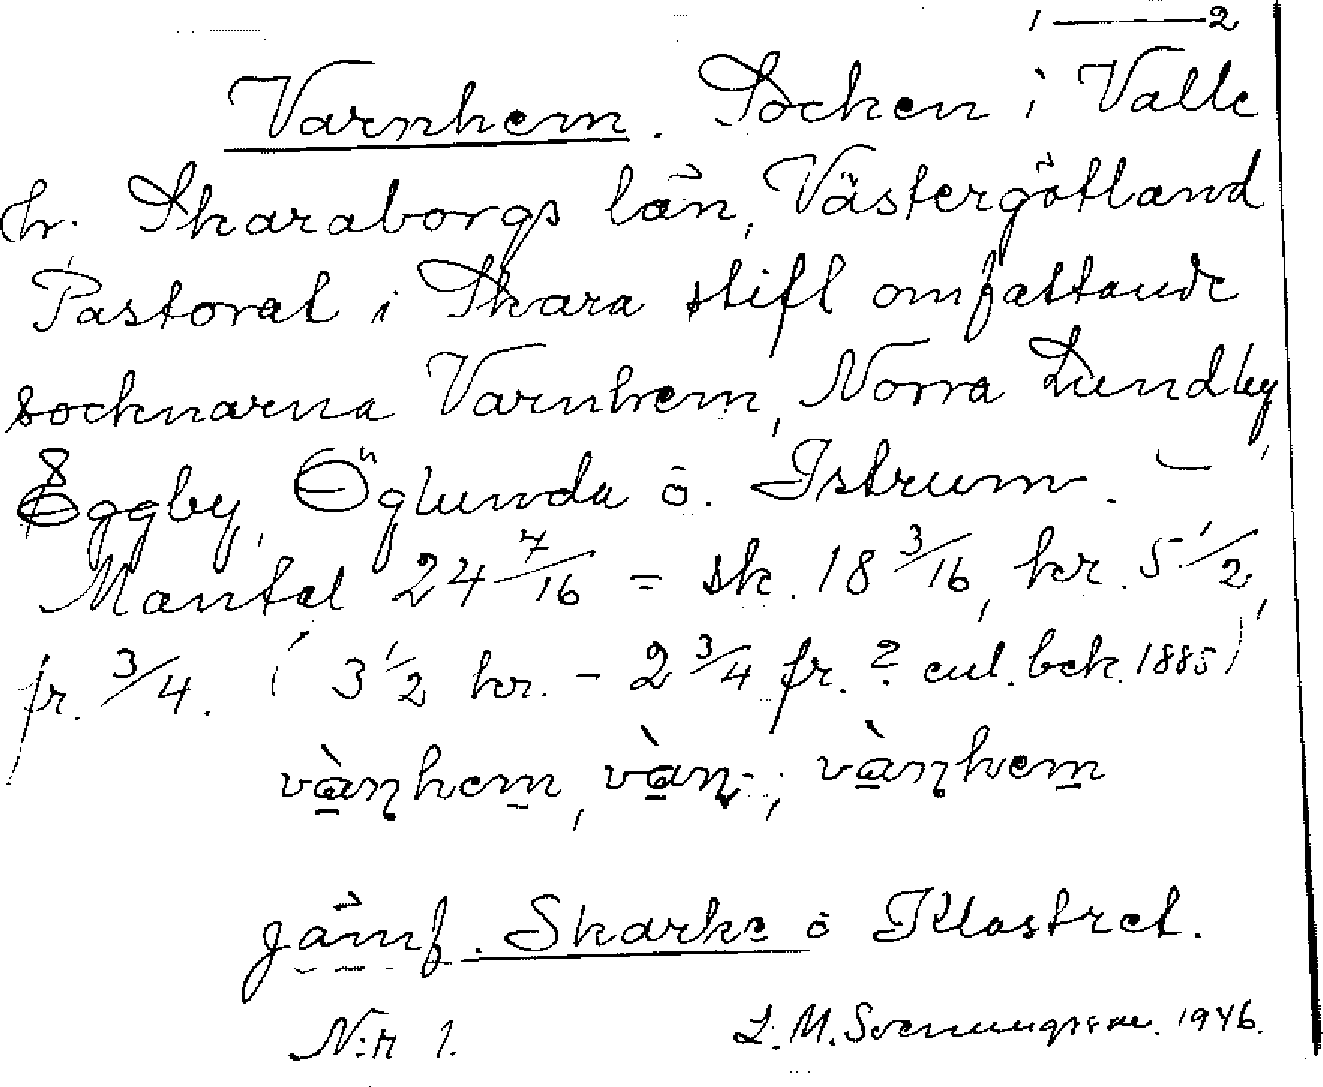 1 — 2
Varnhem. Socken i Valle
hr. Skaraborgs län, Västergötland
Pastorat i Skara stift omfattande
socknarna Varnhem, Norra Lundby,
Eggby, Öglunda o. Istrum. —
Mantal 24 7/16 = sk. 18 3/16, kr. 5 1/2,
fr. 3/4. ( 3 1/2 kr. - 2 3/4 fr. ? enl. bek. 1885)
vàɳhem, vàɳ-, vàɳhem
jämf. Skarke o Klostret.
N:r 1. L. M. Svenungsson. 1946.